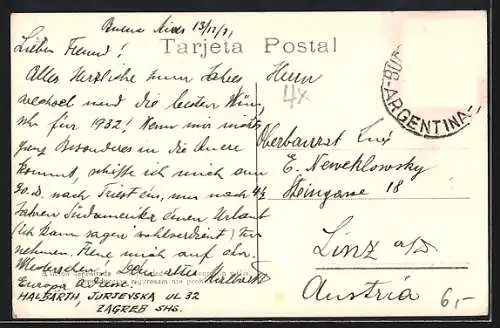 Buenos Aires 13/12/31
Tarjeta Postal
Lieber Freund!
Alles Herzliche zum Jahres
wechsel und die besten Wün
sche für 1932! Wenn mir nichts
ganz Besonderes in die Quere
kommt, schiffe ich mich am
20.D. nach Triest ein, um nach 4½
Jahren Südamerika einen Urlaub
(ich kann sagen wohlverdient) zu
nehmen. Freue mich auf den
Wiedersehen. Dein altes
Europa
HALBARTH, JURJEVSKA UL 32
ZAGREB SHS.
Herrn
4x
Oberbaurat Ing
E. Neweklowsky
Steingasse 18
Linz a/D
Austria
BUE
ARGENTINA
6,-